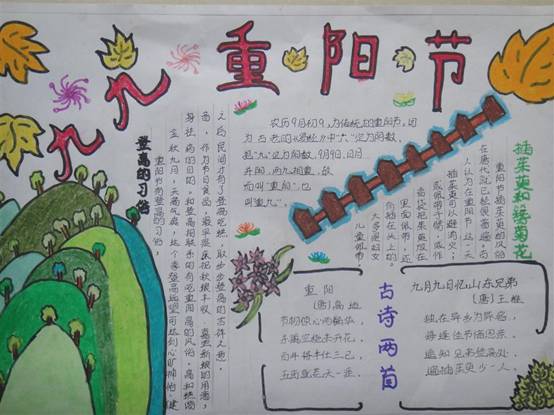 九九重阳节
农历9月初9,为传统的重阳节,因
为古老的《易经》中"六"定为阴数,
把"九"定为阳数,9月9日,日月
并阳,两九相重,故
而叫"重阳",也
叫"重九"。
登高的习俗
重阳节有登高的习俗,
金秋九月,天高气爽,这个季节登高远望可达到心旷神怡、健
身祛病的目的。
插茱萸和簪菊花
重阳节插茱萸的风俗
在唐代就已经很普遍,古
人认为在重阳节这一天
插茱萸可以避难消灾;
或佩带于臂,或作
香袋把茱萸放在
里面佩带,还
有插在头上的。
大多是妇女
儿童佩带,
古诗两首
重阳
(唐)高适
节物惊心两鬓华,
东篱空绕未开花。
百年将半仕三已,
五亩就荒天一涯。
九月九日忆山东兄弟
(唐)王维
独在异乡为异客,
每逢佳节倍思亲。
遥知兄弟登高处,
遍插茱萸少一人。